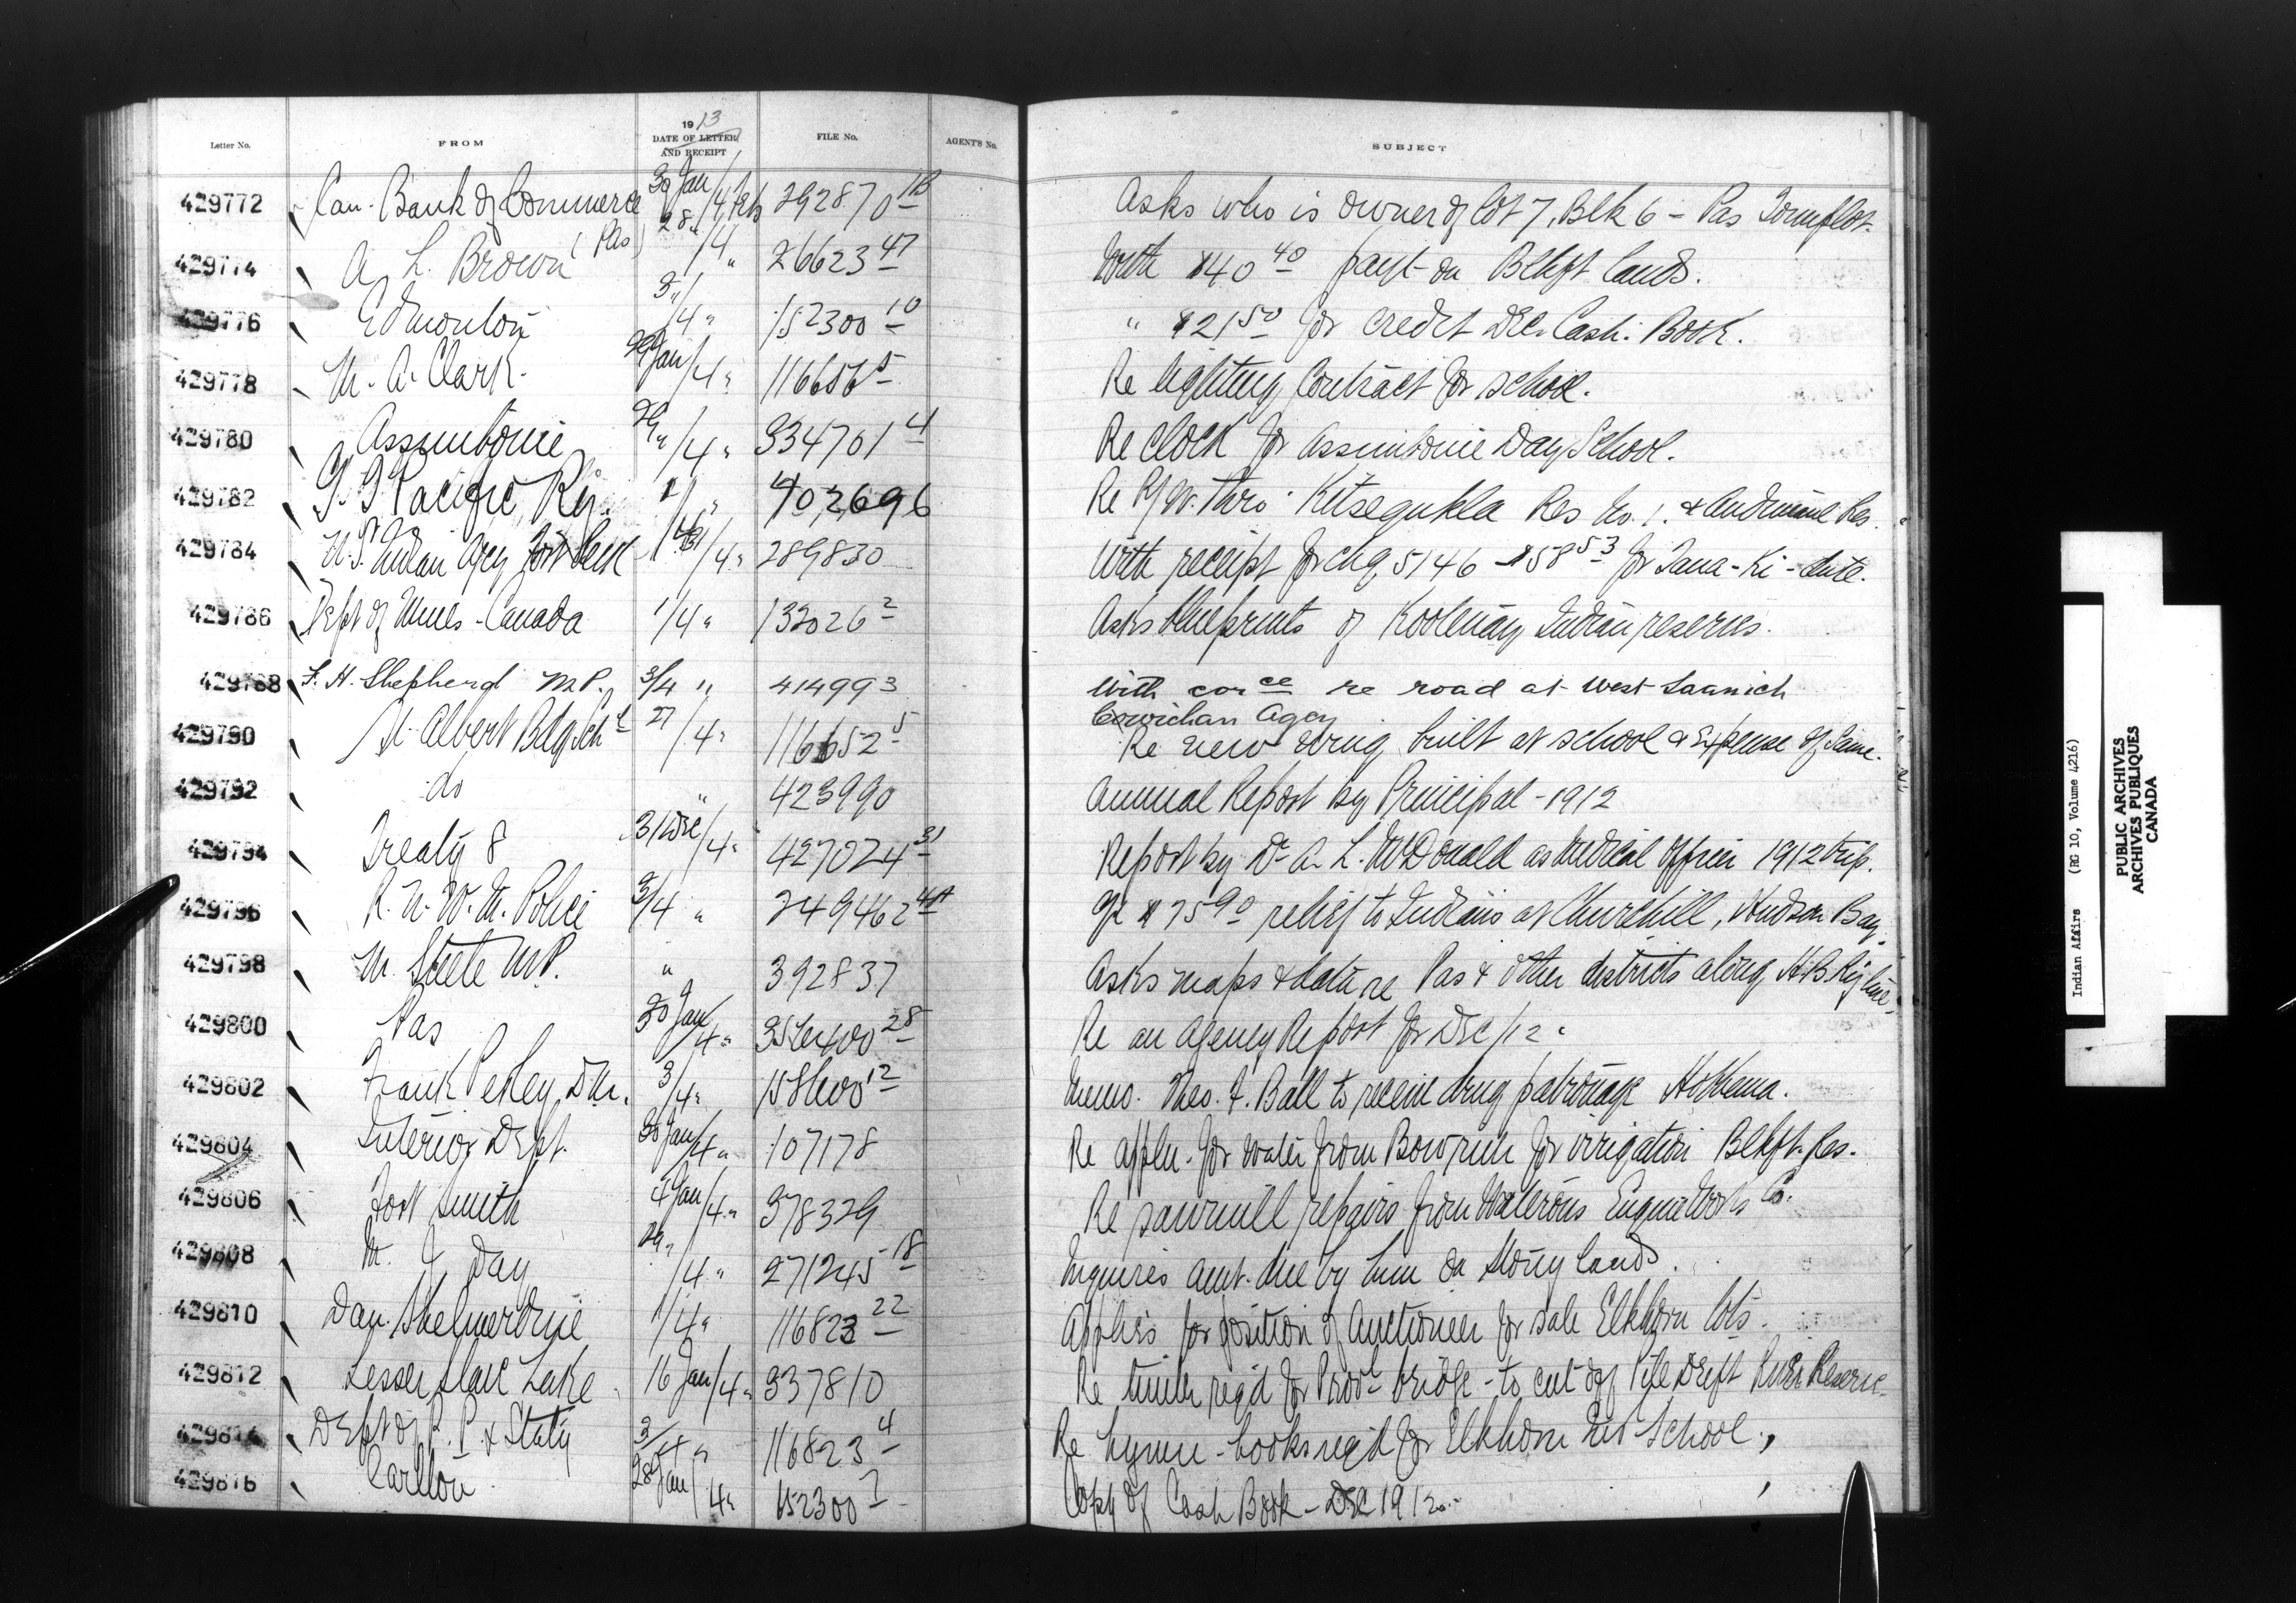 Letter No. FROM 1913 DATE OF LETTER AND RECEIPT FILE No. AGENT'S No. SUBJECT
429772 Can. Bank of Commerce (Pas) 30 Jan/4 Feb 392870 1B Asks who is owner of lot 7, Blk 6 - Pas Townplot.
429774 A. L. Brown 28 "/4 " 26623 47 With $40 40 payt on Blkft lands.
429776 Edmonton 3 "/4 " 152300 10 " $21 50 for credit Dec. Cash. Book.
429778 M. A. Clark 29 Jan/4 " 116656 5 Re lighting Contract for school.
429780 Assiniboine 29 "/4 " 334701 4 Re clock for Assiniboine Day School.
429782 G. T. Pacific Ry. 402696 Re Ry. thro' Kitsegukla Res No. 1. &
429784 U.S. Indian Agcy Fort Peck /4 " 289830 With receipt for chq 5146 - $58 53 for
429786 Dept of Mines - Canada 1/4 " 132026 2 Asks blueprints of Kootenay Indian reserves.
429788 F. H. Shepherd M.P. 3/4 " 414993 With corce re road at West Saanich
Cowichan Agcy
429790 St. Albert Bdg Schl 27/4 " 116652 5 Re new wing built at school & Expense of Same.
429792 do " 423990 Annual Report by Principal - 1912
429794 Treaty 8 31 Dec/4 " 427024 31 Report by Dr A. L. McDonald as Medical Officer 1912 trip.
429796 R. N. W. M. Police 3/4 " 249462 $75 90 relief to Indians at Churchill, Hudson Bay.
429798 M. Steele M.P. " 392837 Asks maps & data re Pas & other districts along H B Ry line.
429800 Pas 30 Jan/4 " 356400 28 Re an Agency Report for Dec/12.
429802 Frank Pedley D.M. 3/4 " 158600 12 Memo. Theo. F. Ball to receive drug patronage
429804 Interior Dept. 30 Jan/4 " 107178 Re appln. for water from Bow river for irrigation Blkft. Res.
429806 Fort Smith 4 Jan/4 " 378329 Re sawmill repairs from Waterous Engine Works Co.
429808 M. J. Day 29 "/4 " 271245 18 Inquires amt. due by him on Stony lands.
429810 Dan. Shelmerdine 1/4 " 116823 22 Applies for position of Auctioneer for sale Elkhorn lots.
429812 Lesser Slave Lake 16 Jan/4 " 337810 Re timber reqd for Provl bridge - to cut off Drift Pile River Reserve.
429814 Dept of P. P. & Staty 3/4 " 116823 4 Re hymn-books reqd for Elkhorn Ind School.
429816 Carlton 28 Jan/4 " 152300 7 Copy of Cash Book - Dec 1912.
Indian Affairs (RG 10, Volume 4216)
PUBLIC ARCHIVES
ARCHIVES PUBLIQUES
CANADA